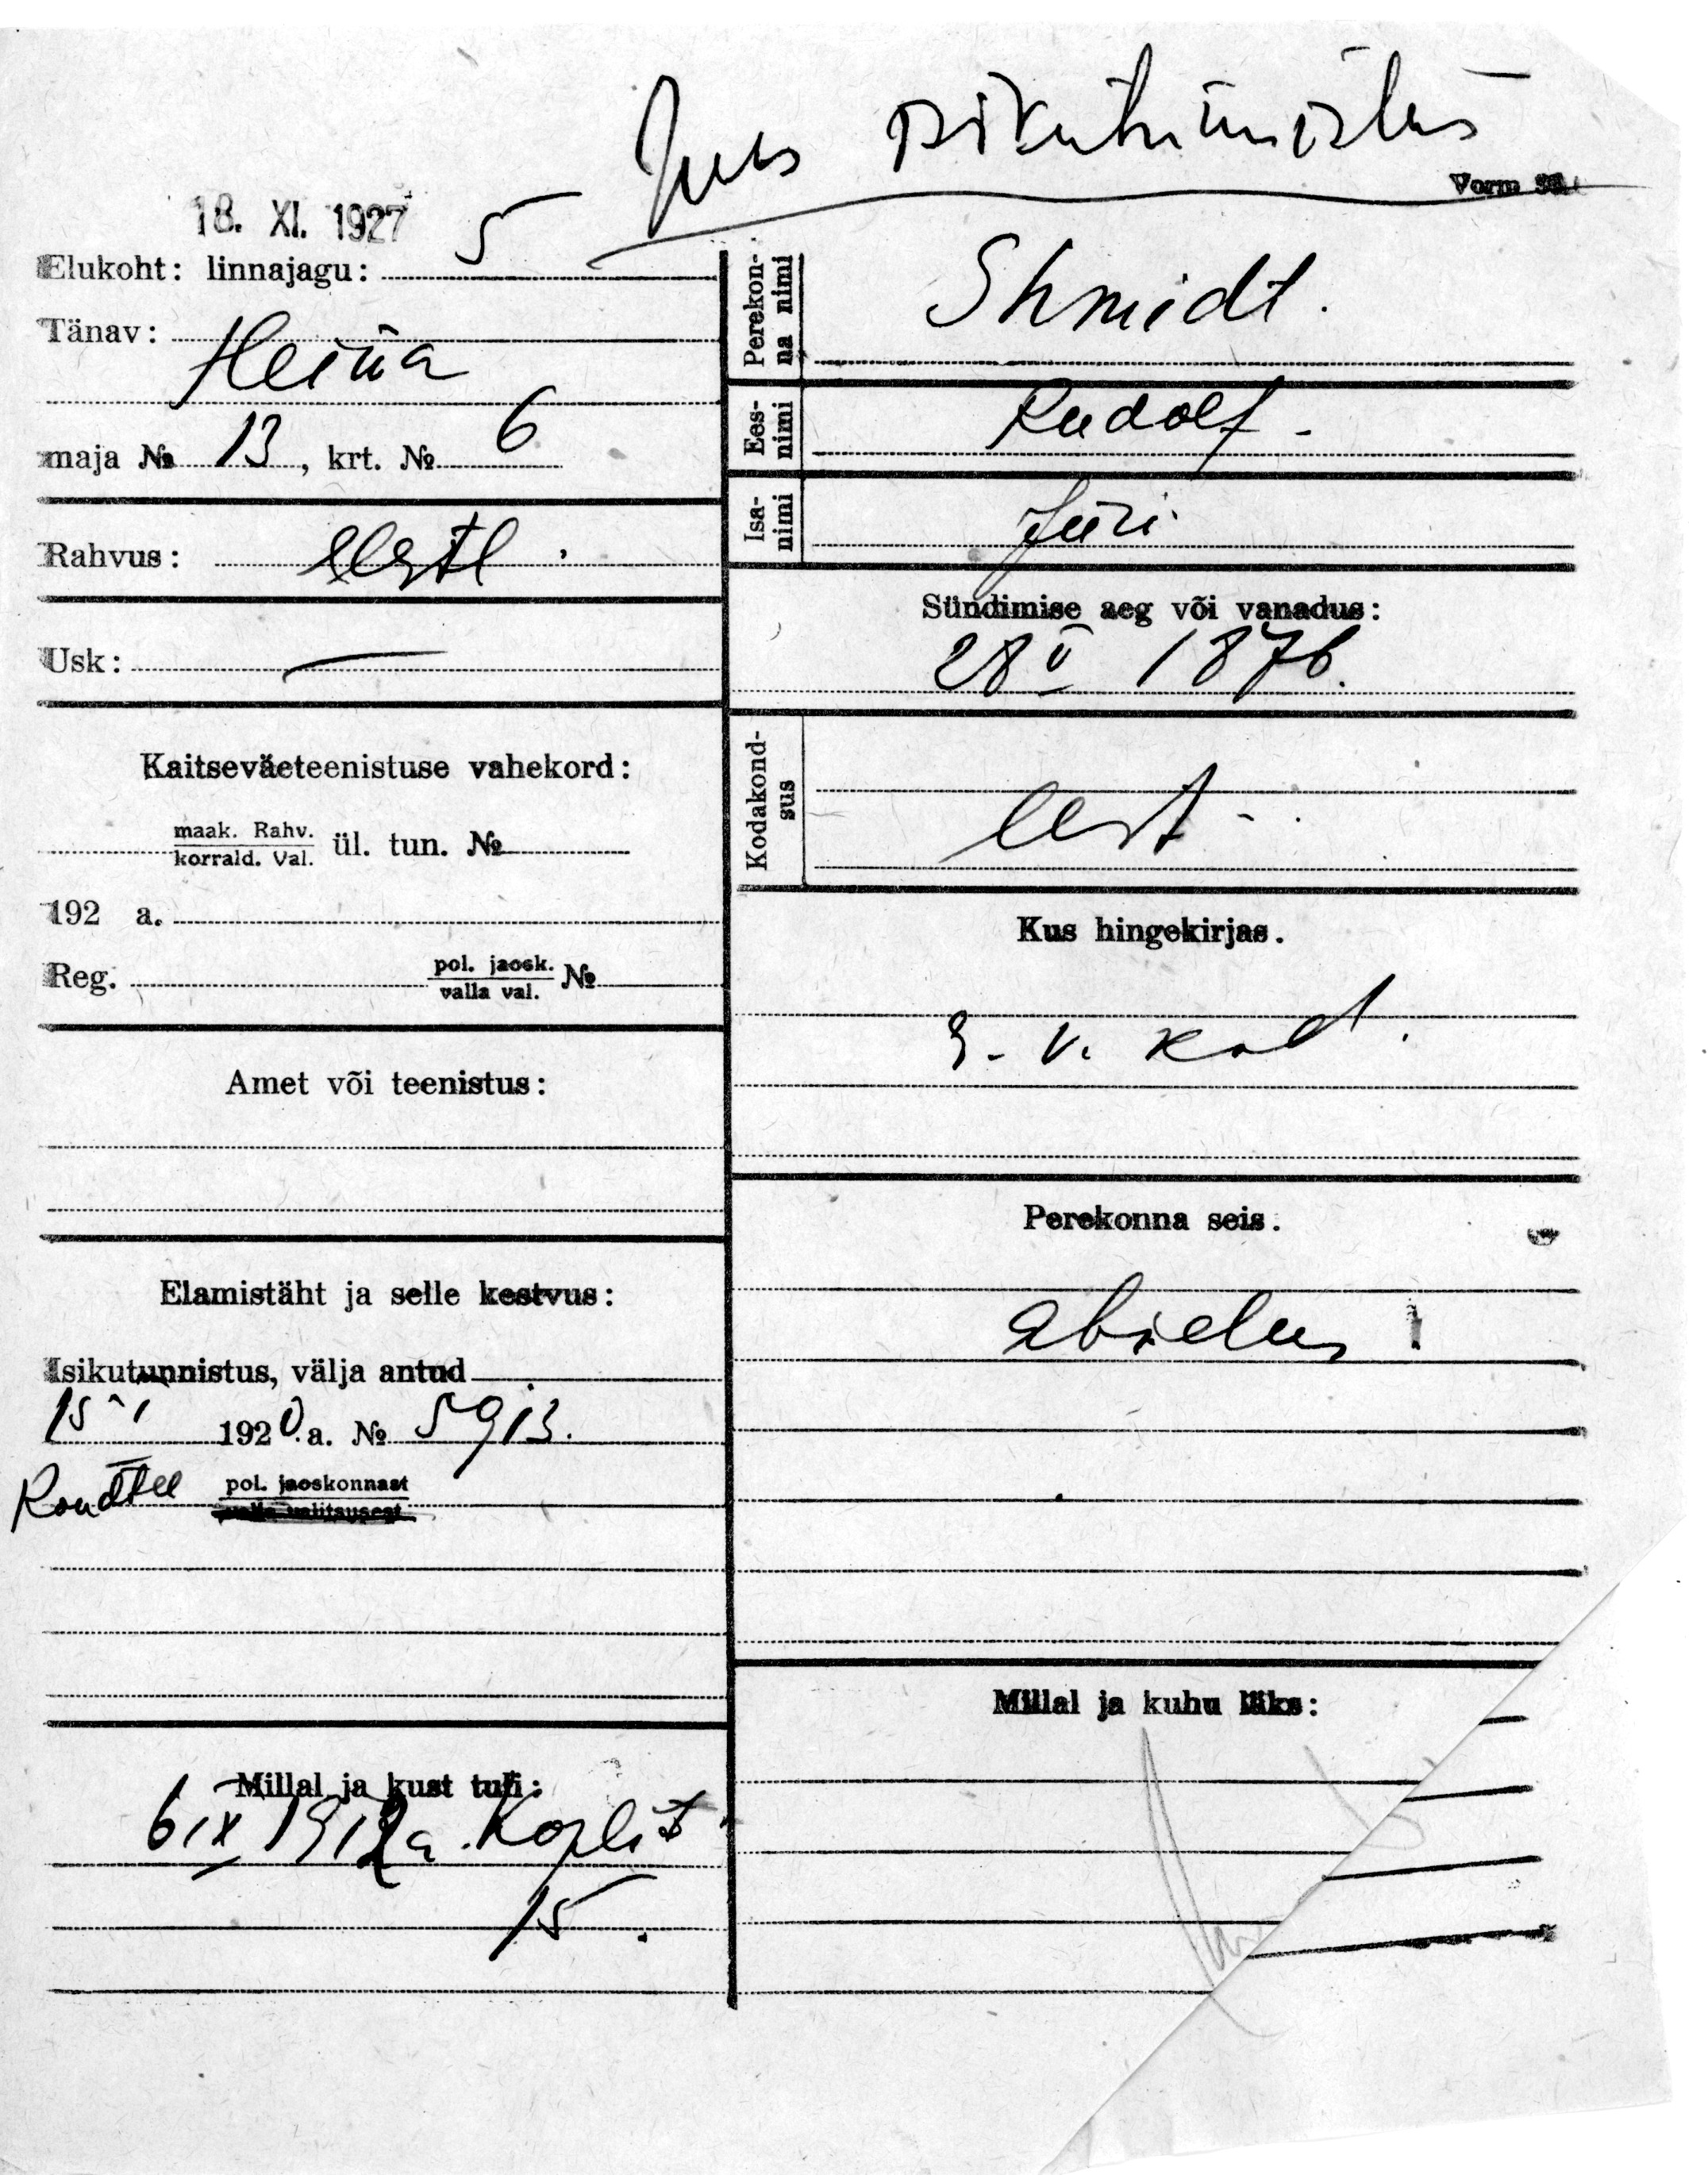 Uus isikutunnistus
Vorm
18. XI. 1927
Elukoht: linnajagu: 5
Tänav: Heina
maja № 13, krt. № 6
Rahvus: eestl.
Usk: —
Kaitseväeteenistuse vahekord:
maak. Rahv.
korrald. Val. ül. tun. №
192 a.
Reg. pol. jaosk.
valla val. №
Amet või teenistus:
Elamistäht ja selle kestvus:
Isikutunnistus, välja antud
15 I 1920. a. № 5913.
Raudtee pol. jaoskonnast
valla valitsusest
Millal ja kust tuli:
6 IX 1912 a. Koplit
15.
Perekon-
na nimi Shmidt.
Ees-
nimi Rudolf.
Isa-
nimi Jüri
Sündimise aeg või vanadus:
28 V 1876.
Kodakond-
sus eest.
Kus hingekirjas.
E. V. kod.
Perekonna seis.
abielus
Millal ja kuhu läks: